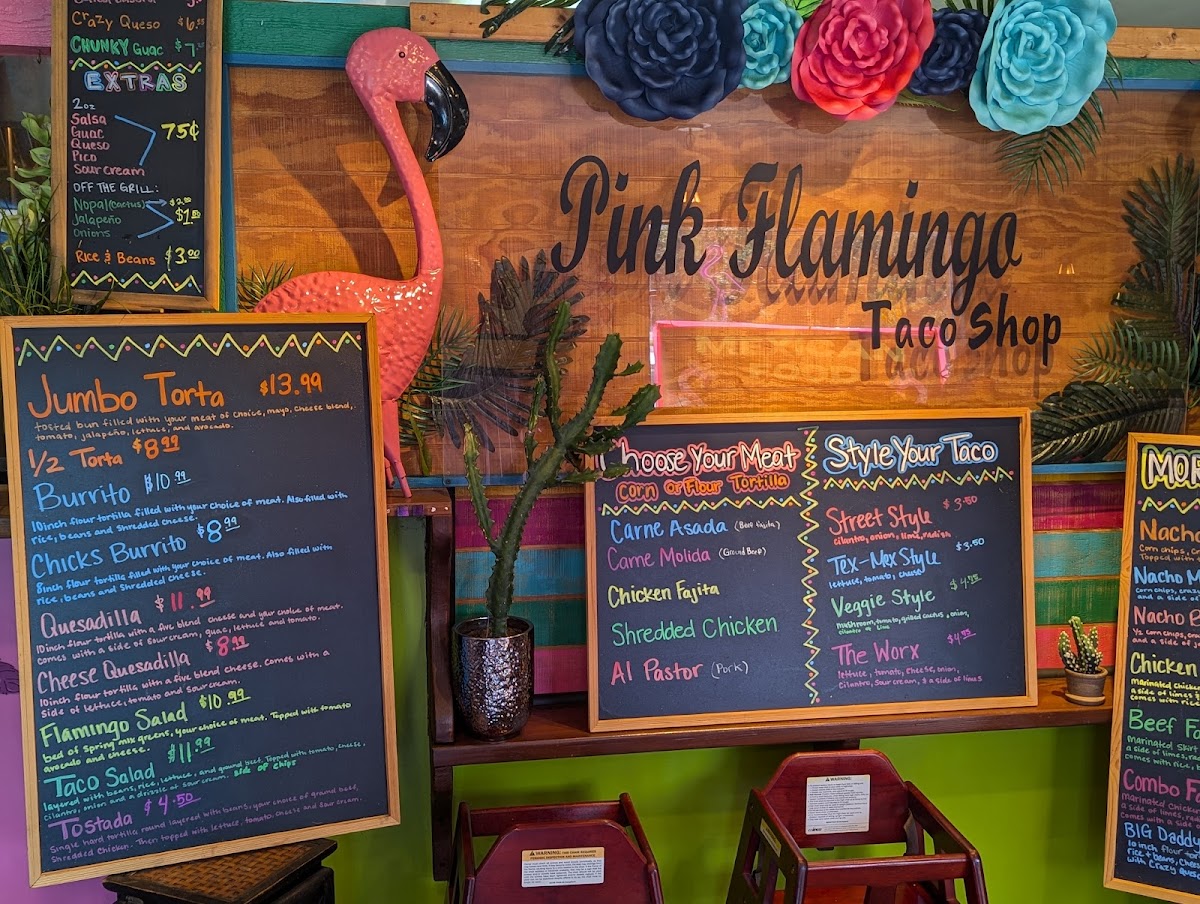 Crazy Queso $6.
Chunky Guac $7.
EXTRAS
2oz
Salsa
Guac
Queso
Pico
Sour cream
75¢
OFF THE GRILL:
Nopal (cactus) $2.00
Jalapeño $1.
Onions
Rice & Beans $3.00
Pink Flamingo
Taco Shop
MEXICAN
FOOD
Jumbo Torta $13.99
tosted bun filled with your meat of choice, mayo, cheese blend,
tomato, jalapeño, lettuce, and avocado.
1/2 Torta $8.99
Burrito $10.99
10inch flour tortilla filled with your choice of meat. Also filled with
rice, beans and shredded cheese.
Chicks Burrito $8.99
8inch flour tortilla filled with your choice of meat. Also filled with
rice, beans and shredded cheese.
Quesadilla $11.99
10inch flour tortilla with a five blend cheese and your choice of meat.
comes with a side of sour cream, guac, lettuce and tomato.
Cheese Quesadilla $8.99
10inch flour tortilla with a five blend cheese. Comes with a
side of lettuce, tomato and sour cream.
Flamingo Salad $10.99
bed of spring mix greens, your choice of meat. Topped with tomato
avocado and cheese.
Taco Salad $11.99
layered with beans, rice, lettuce, and ground beef. Topped with tomato, cheese,
cilantro, onion and a drizzle of sour cream. side of chips
Tostada $4.50
Single hard tortilla round layered with beans, your choice of ground beef,
Shredded Chicken. Then topped with lettuce, tomato, cheese and sour cream.
Choose Your Meat
Corn or Flour Tortilla
Carne Asada (Beef Fajita)
Carne Molida (Ground Beef)
Chicken Fajita
Shredded Chicken
Al Pastor (Pork)
Style Your Taco
Street Style $3.50
cilantro, onion, lime, radish
Tex-Mex Style $3.50
lettuce, tomato, cheese
Veggie Style
mushroom, tomato, grilled cactus, onion,
cilantro & lime
The Worx
lettuce, tomato, cheese, onion,
cilantro, sour cream, & a side of limes
Nacho
corn chips,
Topped with
Nacho
corn chips,
and a side of
Nacho
1/2 corn chips,
and a side of
Chicken
marinated
a side of limes
comes with
Beef
Marinated Skirt
a side of limes,
comes with rice,
Combo
marinated
a side of limes,
comes with a side
BIG Daddy
10inch flour
rice & beans,
with Crazy
WARNING:
WARNING: